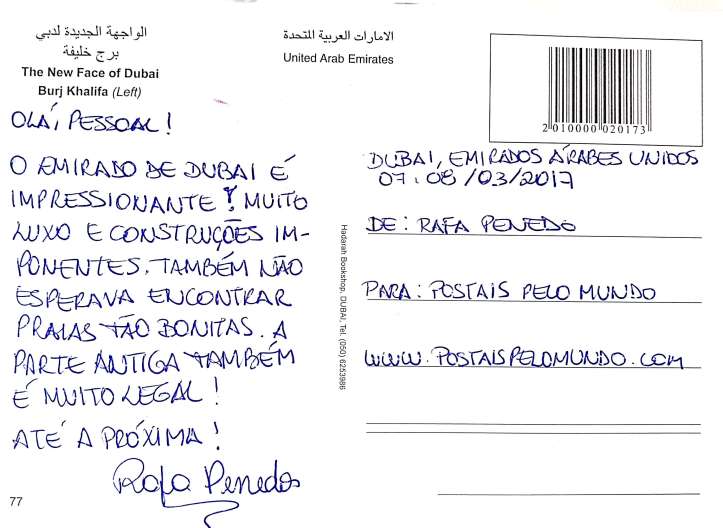 الواجهة الجديدة لدبي
برج خليفة
The New Face of Dubai
Burj Khalifa (Left)
الامارات العربية المتحدة
United Arab Emirates
2 010000 020173
OLÁ, PESSOAL!
O EMIRADO DE DUBAI É
IMPRESSIONANTE! MUITO
LUXO E CONSTRUÇÕES IM-
PONENTES. TAMBÉM NÃO
ESPERAVA ENCONTRAR
PRAIAS TÃO BONITAS. A
PARTE ANTIGA TAMBÉM
É MUITO LEGAL!
ATÉ A PRÓXIMA!
Rafa Penedo
77
Hadarah Bookshop, DUBAI, Tel. (050) 6253986
DUBAI, EMIRADOS ÁRABES UNIDOS
07.08/03/2017
DE: RAFA PENEDO
PARA: POSTAIS PELO MUNDO
WWW.POSTAISPELOMUNDO.COM